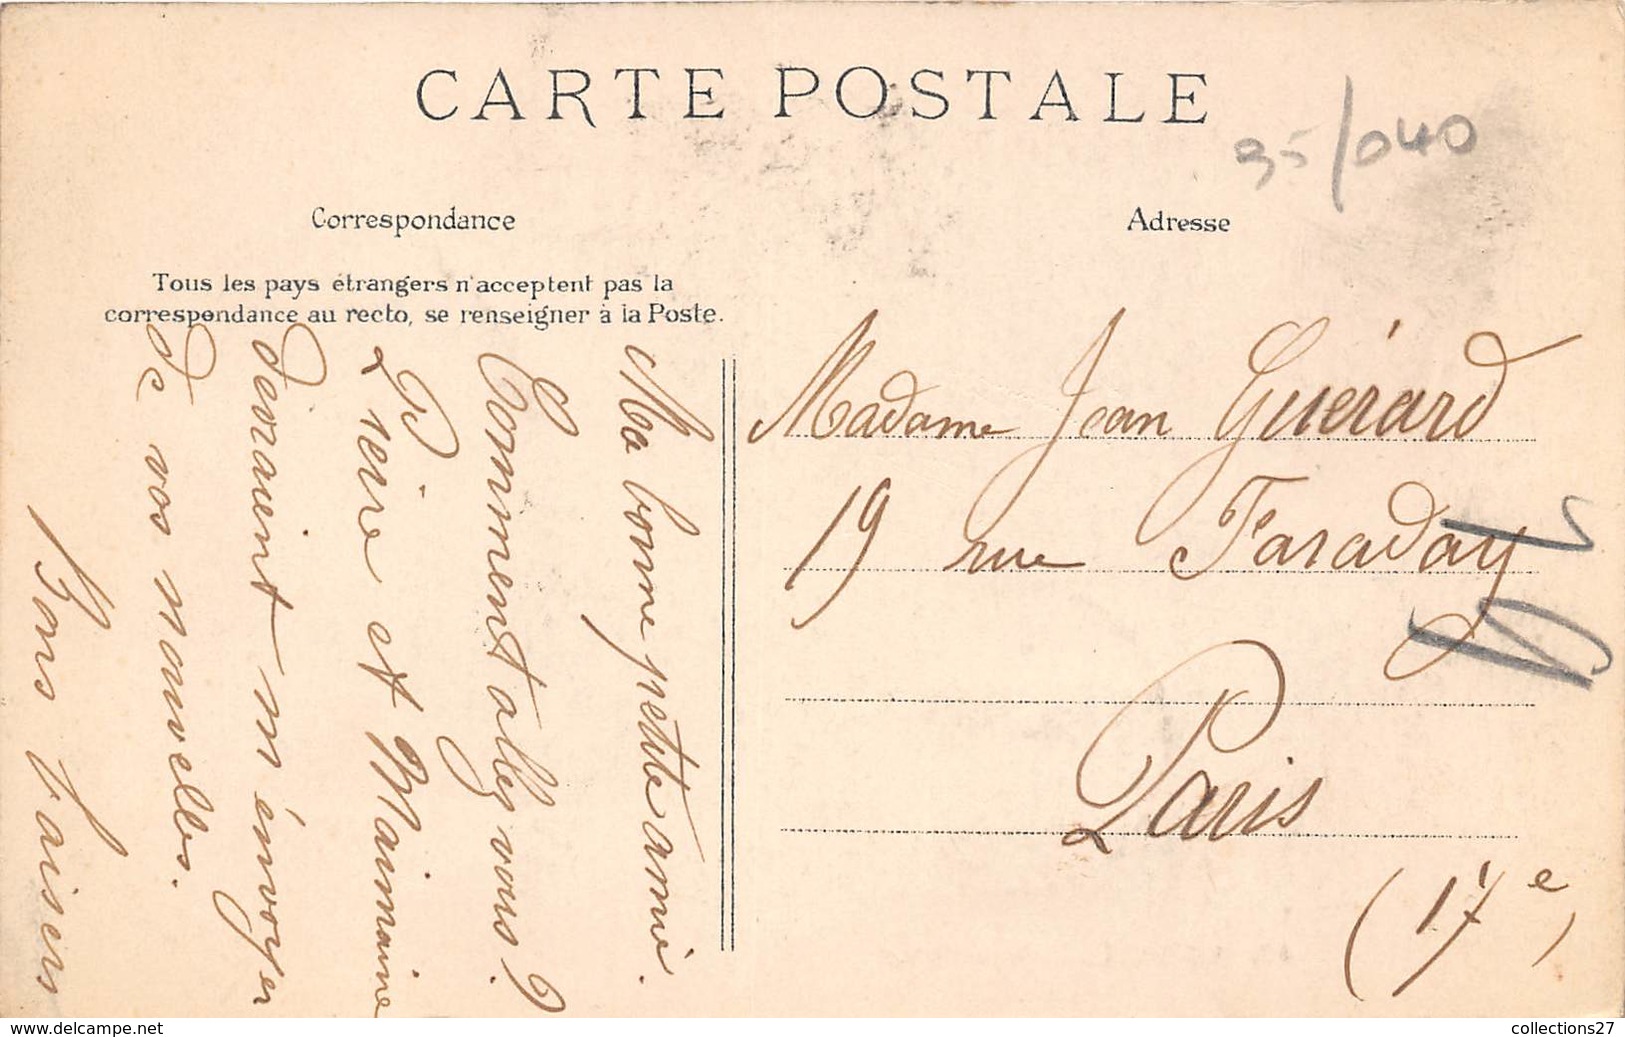 CARTE POSTALE
35/040
Correspondance
Adresse
Tous les pays étrangers n'acceptent pas la
correspondance au recto, se renseigner à la Poste.
Ma bonne petite amie.
Comment allez vous?
Pierre et Maimaine
devraient m'énvoyer
de vos nouvelles.
Bons baisers
Madame Jean Guérard
19 rue Faraday
Paris
(17e)
www.delcampe.net
collections27